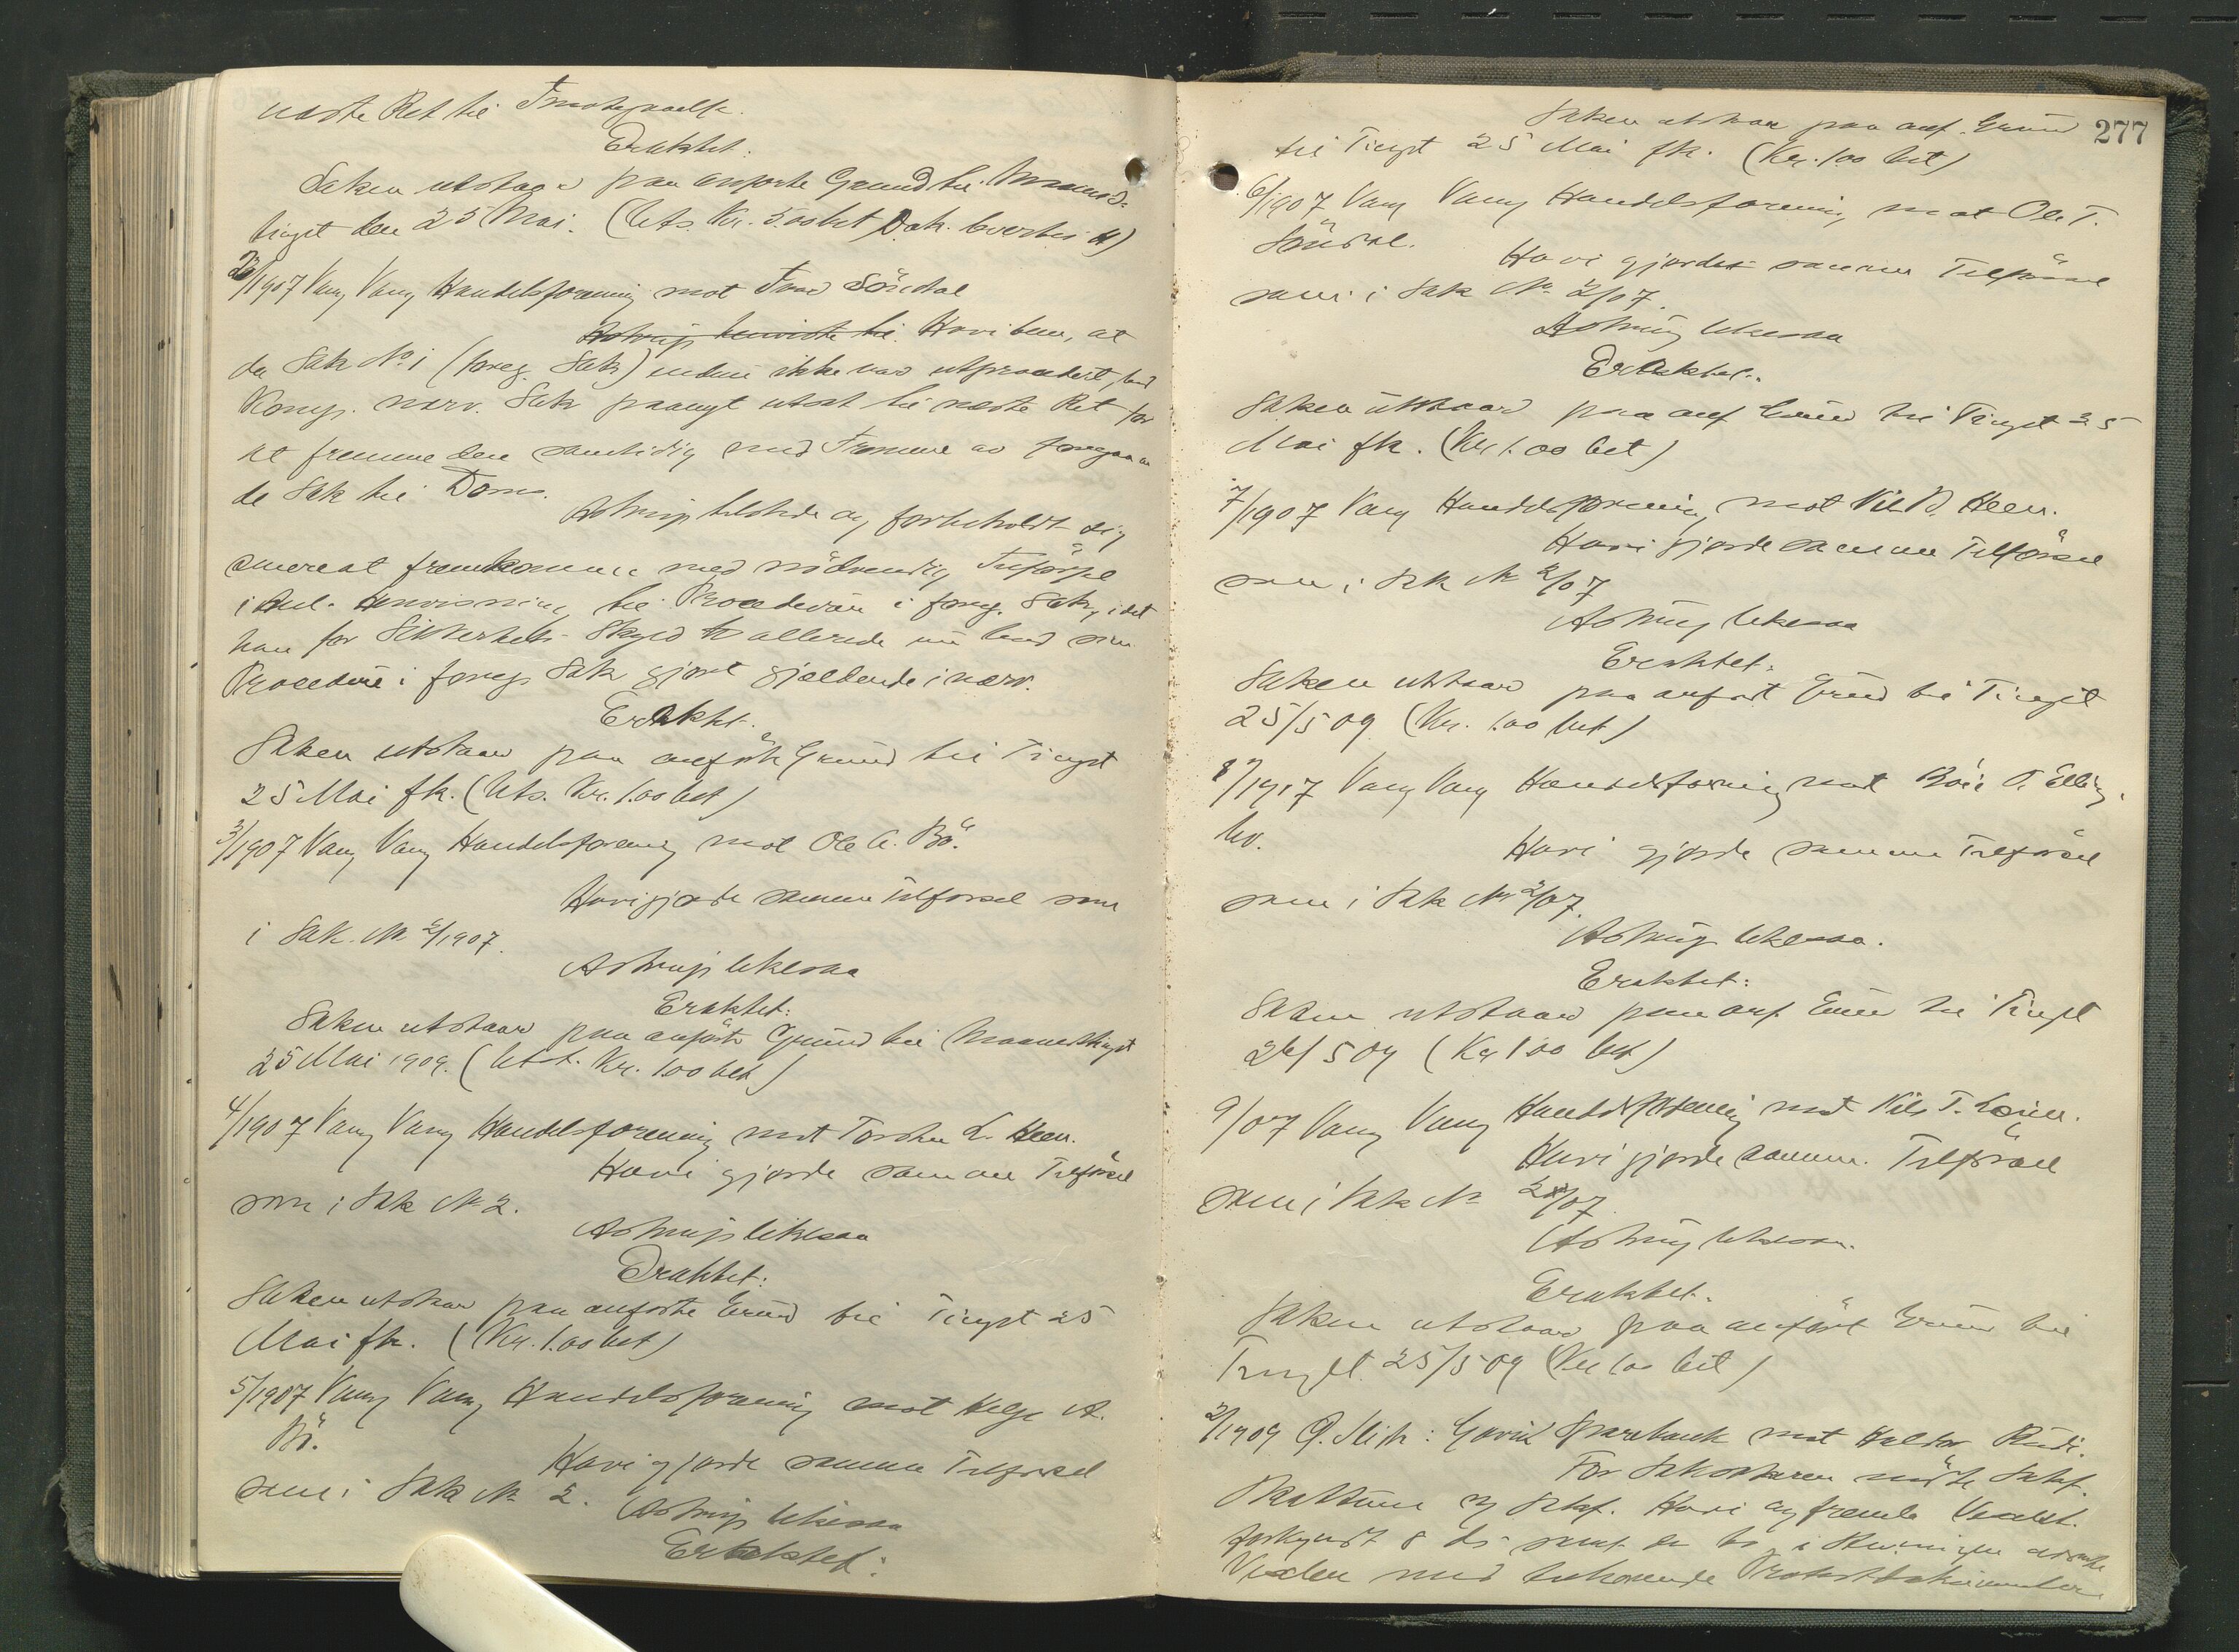 næste Ret til Imøtegaaelse.
Eragtet:
Saken utstaar paa anførte Grund til Maaneds-
tinget den 25 Mai. (Uts. Kr. 5.00 bet Dok. levertes H)
2/1907 Vang Vang Handelsforening mot Ivar Söndal
Astrup henviste til. Hovi bem, at
da Sak No 1 (foreg. Sak) endnu ikke var utprocedert,
nærv. Sak utsat til næste Ret for
at fremme den samtidig med Fremme av foregaaen
de Sak til Dom.
Astrup tilstede og forbeholdt sig
senere at fremkomme med nödvendig Tilförsel
i Henvisning til Proceduren i foreg. Sak, idet
han for Sikkerheds Skyld allerede nu sin
Procedure i foreg. Sak gjort gjældende i nærv.
Eragtet.
Saken utstaar paa anförte Grund til Tinget
25 Mai fk. (Uts. Kr. 1.00 bet)
3/1907 Vang Vang Handelsforening mot Ole A. Bö.
Hovi gjorde samme Tilförsel som
i Sak. No. 2/1907.
Astrup likesaa
Eragtet:
Saken utstaar paa anförte Grund til Maanedstinget
25 Mai 1909. (Utst. Kr. 1.00 bet.)
4/1907 Vang Vang Handelsforening mot Torsten L. Heen.
Hovi gjorde samme Tilförsel
som i Sak No 2.
Astrup likesaa
Eragtet:
Saken utstaar paa anförte Grund til Tinget 25
Mai fk. (Kr. 1.00 bet)
5/1907 Vang Vang Handelsforening mot Helge A.
Bö.
Hovi gjorde samme Tilförsel
som i Sak No 2.
Astrup likesaa
Eragtet:
277
Saken utstaar paa anf. Grund
til Tinget 25 Mai fk. (Kr. 1.00 bet)
6/1907 Vang Vang Handelsforening mot Ole T.
Söndal.
Hovi gjorde samme Tilförsel
som i Sak No 2/07.
Astrup likesaa
Eragtet.
Saken utstaar paa anf Grund til Tinget 25
Mai fk. (Kr 1.00 bet)
7/1907 Vang Handelsforening mot Nils Heen.
Hovi gjorde samme Tilförsel
som i Sak No 2/07
Astrup likesaa
Eragtet:
Saken utstaar paa anfört Grund til Tinget
25/5 09 (Kr. 1.00 bet)
8/1907 Vang Vang Handelsforening mot
Hovi gjorde samme Tilförsel
som i Sak No 2/07.
Astrup likesaa.
Eragtet:
Saken utstaar paa anf. Grund til Tinget
25/5 09 (Kr 1.00 bet)
9/07 Vang Vang Handelsforening mot Nils T.
Hovi gjorde samme Tilförsel
som i Sak No 2/07.
Astrup likesaa.
Eragtet.
Saken utstaar paa anfört Grund til
Tinget 25/5 09 (Kr 1.00 bet)
2/1909 Ö. Slidre: Gjøvik Sparebank mot Haldor Rudi.
For Saksökeren mötte Sakf.
Skattum ved Sakf. Hovi og fremla
forkyndt 8 ds samt de i
Vexler med tilhörende Protestdokumenter